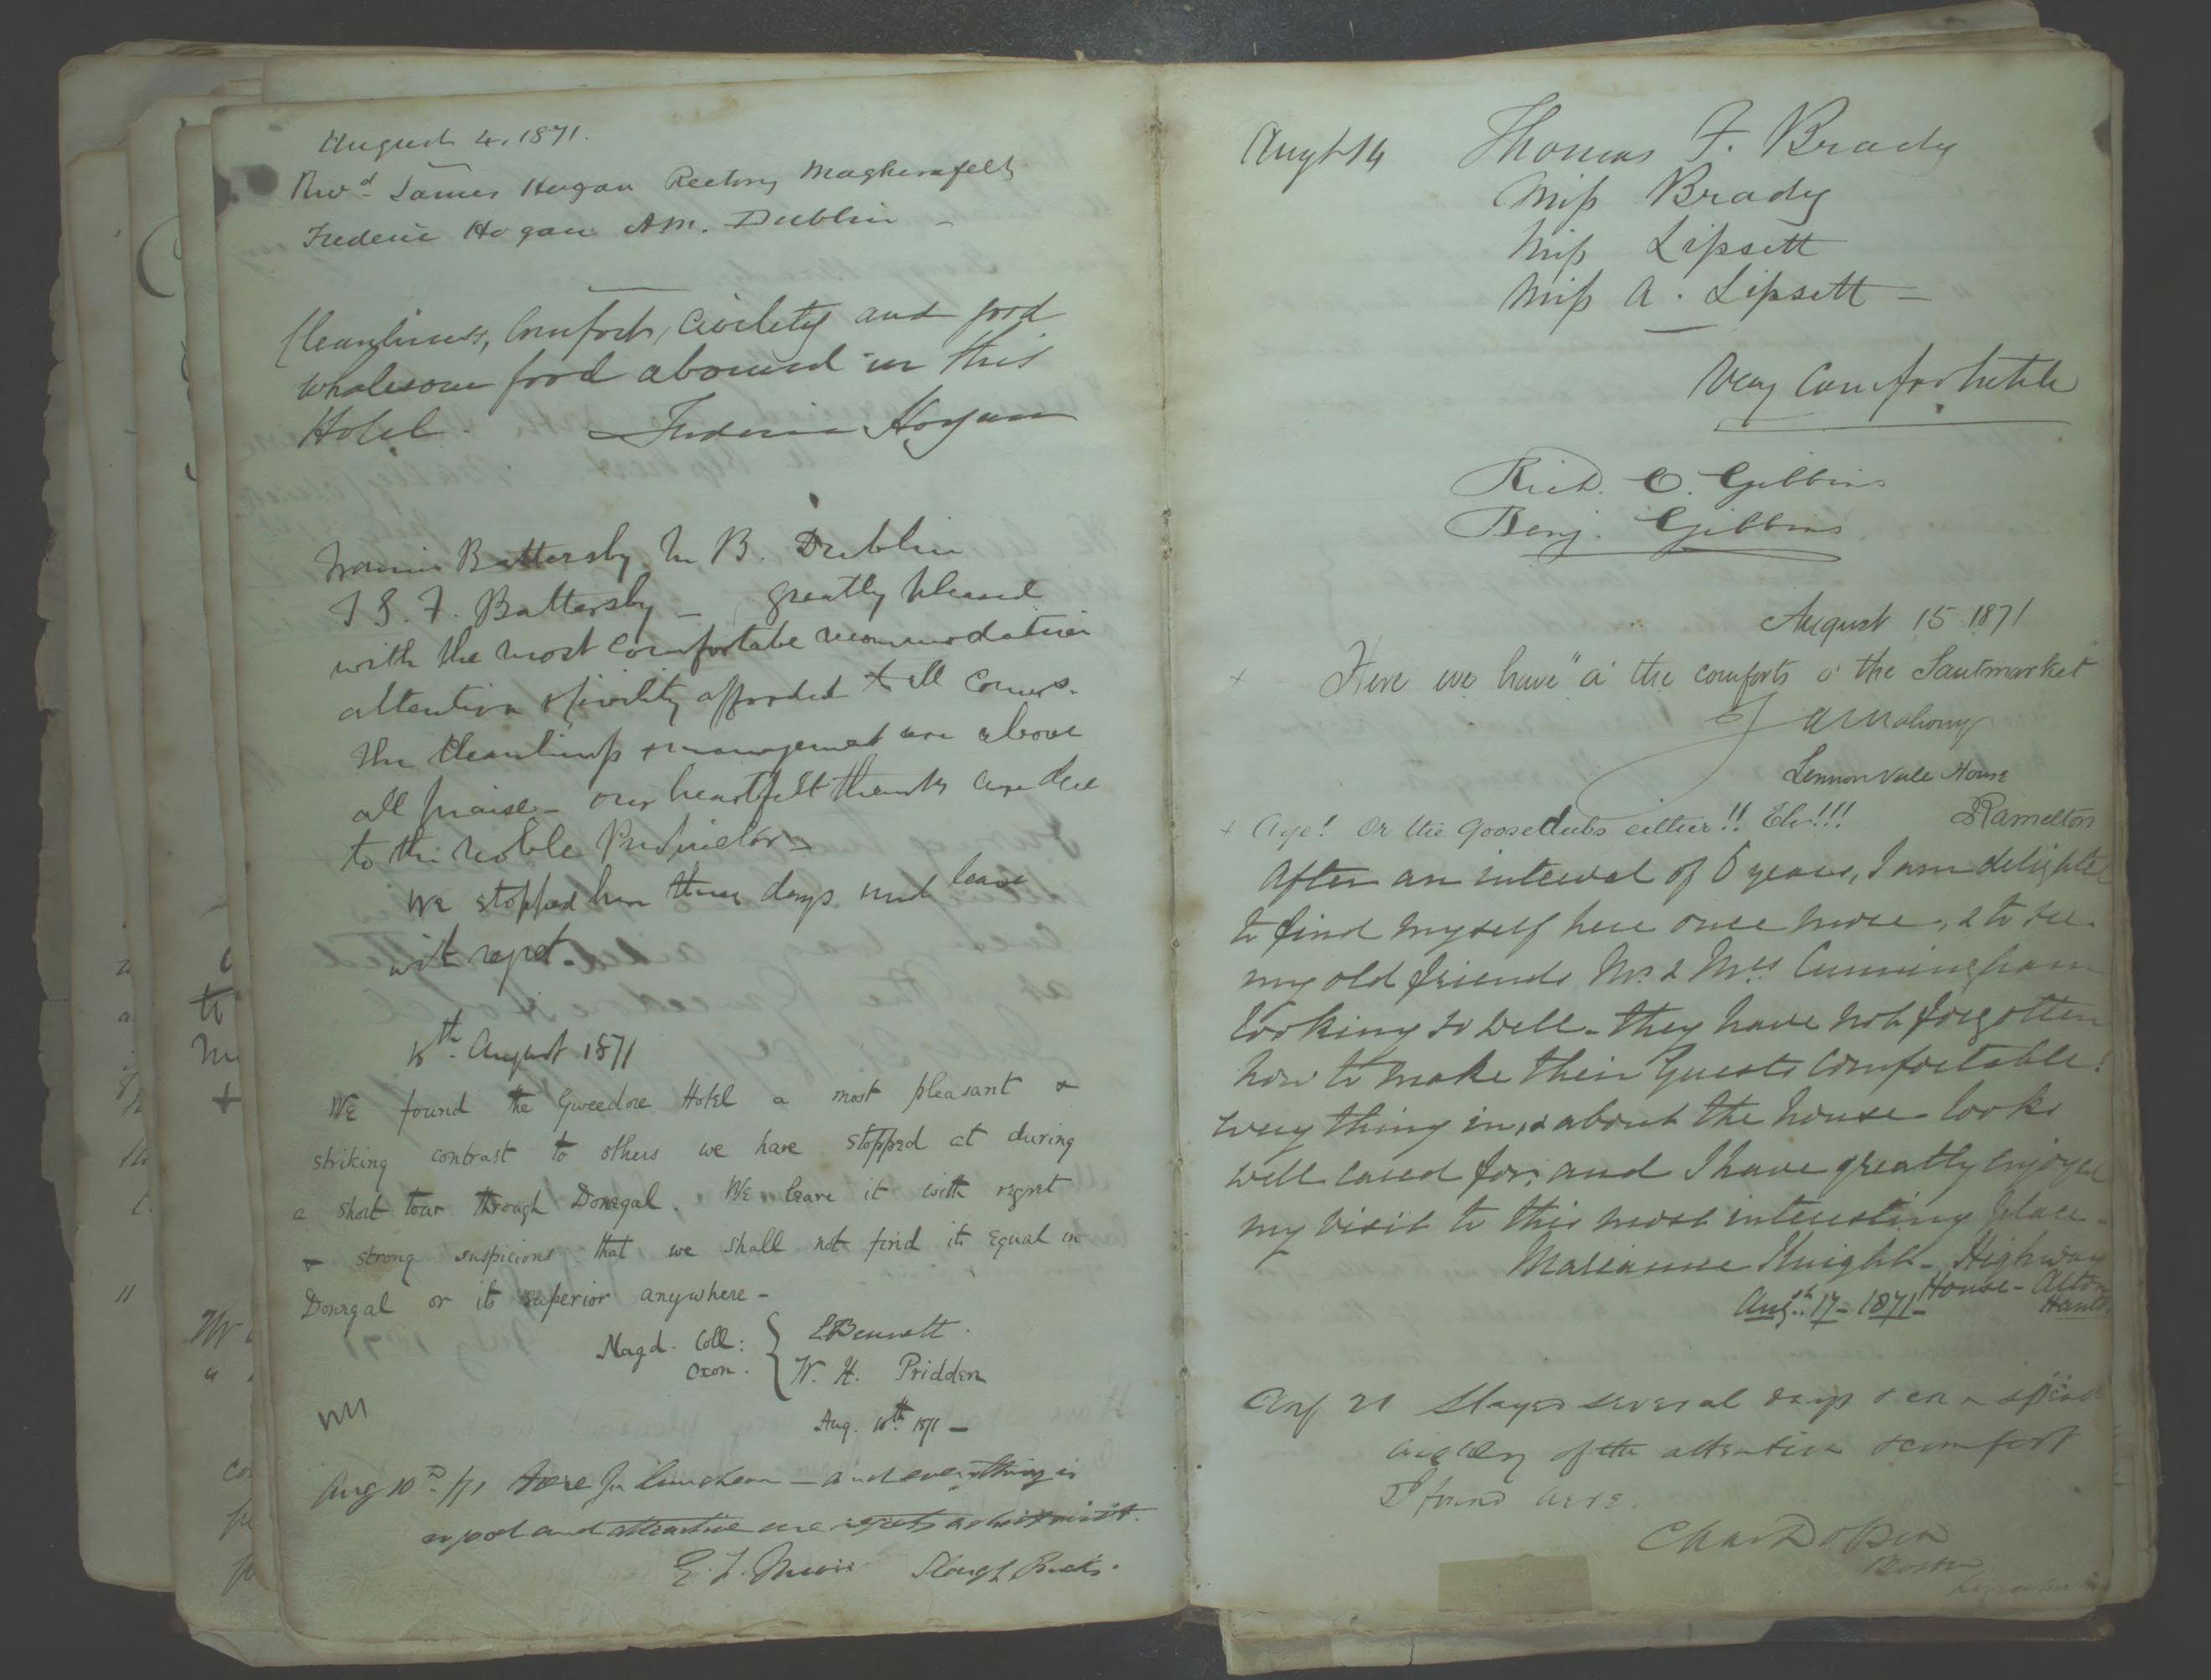 August 4, 1871.
Revd James Hogan Rectory Magherafelt
Frederic Hogan AM. Dublin -
Cleanliness, Comfort, Civility and good
wholesome food abound in this
Hotel. Frederic Hogan
Francis Battersby M B. Dublin
T S. F. Battersby - greatly pleased
with the most comfortable accommodation
attention & civility afforded to all comers.
The cleanliness & management are above
all praise - our heartfelt thanks are due
to the noble Proprietor -
We stopped here three days and leave
with regret.
10th August 1871
We found the Gweedore Hotel a most pleasant &
striking contrast to others we have stopped at during
a short tour through Donegal. We leave it with regret
& strong suspicions that we shall not find its equal in
Donegal or its superior anywhere -
Magd. Coll: Oxon. { L Bennett.
W. H. Pridden
Aug. 10th 1871 -
Aug 10th /71 Here for luncheon - and everything is
so good and attractive one regrets so short a visit.
E. J. Slough Bucks.
Augt 14 Thomas F. Brady
Miss Brady
Miss Lipsett
Miss A. Lipsett -
Very Comfortable
Rich. C. Gibbins
Benj. Gibbins
August 15 1871
+ Here we have "a' the comforts o' the Sautmarket"
J A Mahony
Lennonvale House
Ramelton
+ Aye! Or the Goosedubs either!! Eh!!!
After an interval of 5 years, I am delighted
to find myself here once more, & to see
my old friends Mr. & Mrs. Cunningham
looking so well - they have not forgotten
how to make their Guests comfortable:
every thing in, & about the house looks
well cared for; and I have greatly enjoyed
my visit to this most interesting place -
Marianne Knight - Highway
House - Alton
Hants
Augst. 17 - 1871 -
Aug 21 Stayed several days & can speak
highly of the attention & comfort
I found here.
Chas Dobson
Boston